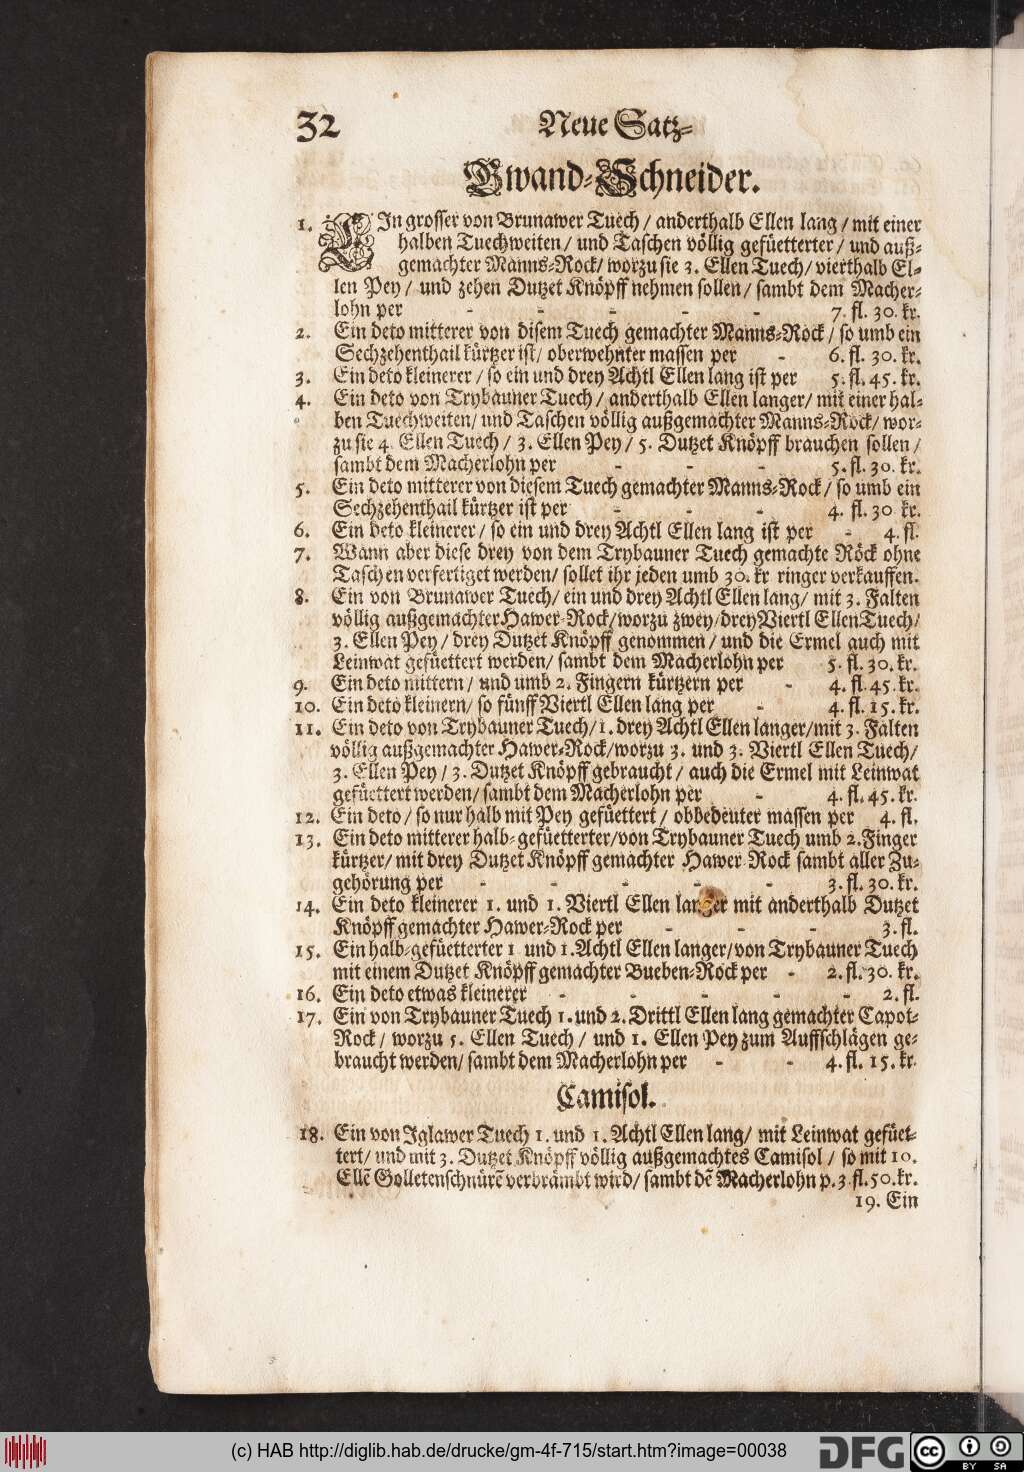 32 Neue Satz-
Gwand-Schneider.
1. EIn grosser von Brunawer Tuech / anderthalb Ellen lang / mit einer
halben Tuechweiten / und Taschen völlig gefüetterter / und auß-
gemachter Manns-Rock / worzu sie 3. Ellen Tuech / vierthalb El-
len Pey / und zehen Dutzet Knöpff nehmen sollen / sambt dem Macher-
lohn per - - - - - 7. fl. 30. kr.
2. Ein deto mitterer von disem Tuech gemachter Manns-Rock / so umb ein
Sechzehenthail kürtzer ist / oberwehnter massen per - 6. fl. 30. kr.
3. Ein deto kleinerer / so ein und drey Achtl Ellen lang ist per 5. fl. 45. kr.
4. Ein deto von Trybauner Tuech / anderthalb Ellen langer / mit einer hal-
ben Tuechweiten / und Taschen völlig außgemachter Manns-Rock / wor-
zu sie 4. Ellen Tuech / 3. Ellen Pey / 5. Dutzet Knöpff brauchen sollen /
sambt dem Macherlohn per - - - 5. fl. 30. kr.
5. Ein deto mitterer von diesem Tuech gemachter Manns-Rock / so umb ein
Sechzehenthail kürtzer ist per - - - 4. fl. 30 kr.
6. Ein deto kleinerer / so ein und drey Achtl Ellen lang ist per - 4. fl.
7. Wann aber diese drey von dem Trybauner Tuech gemachte Röck ohne
Taschen verfertiget werden / sollet ihr jeden umb 30. kr ringer verkauffen.
8. Ein von Brunawer Tuech / ein und drey Achtl Ellen lang / mit 3. Falten
völlig außgemachter Hawer-Rock / worzu zwey / drey Viertl Ellen Tuech /
3. Ellen Pey / drey Dutzet Knöpff genommen / und die Ermel auch mit
Leinwat gefüettert werden / sambt dem Macherlohn per 5. fl. 30. kr.
9. Ein deto mittern / und umb 2. Fingern kürtzern per - 4. fl. 45. kr.
10. Ein deto kleinern / so fünff Viertl Ellen lang per - 4. fl. 15. kr.
11. Ein deto von Trybauner Tuech / 1. drey Achtl Ellen langer / mit 3. Falten
völlig außgemachter Hawer-Rock / worzu 3. und 3. Viertl Ellen Tuech /
3. Ellen Pey / 3. Dutzet Knöpff gebraucht / auch die Ermel mit Leinwat
gefüettert werden / sambt dem Macherlohn per - 4. fl. 45. kr.
12. Ein deto / so nur halb mit Pey gefüettert / obbedeuter massen per 4. fl.
13. Ein deto mitterer halb-gefüetterter / von Trybauner Tuech umb 2. Finger
kürtzer / mit drey Dutzet Knöpff gemachter Hawer-Rock sambt aller Zu-
gehörung per - - - - - 3. fl. 30. kr.
14. Ein deto kleinerer 1. und 1. Viertl Ellen langer mit anderthalb Dutzet
Knöpff gemachter Hawer-Rock per - - - 3. fl.
15. Ein halb-gefüetterter 1 und 1. Achtl Ellen langer / von Trybauner Tuech
mit einem Dutzet Knöpff gemachter Bueben-Rock per - 2. fl. 30. kr.
16. Ein deto etwas kleinerer - - - - - 2. fl.
17. Ein von Trybauner Tuech 1. und 2. Drittl Ellen lang gemachter Capot-
Rock / worzu 5. Ellen Tuech / und 1. Ellen Pey zum Auffschlägen ge-
braucht werden / sambt dem Macherlohn per - - 4. fl. 15. kr.
Camisol.
18. Ein von Iglawer Tuech 1. und 1. Achtl Ellen lang / mit Leinwat gefüet-
tert / und mit 3. Dutzet Knöpff völlig außgemachtes Camisol / so mit 10.
Ellẽ Golletenschnürẽ verbrämbt wird / sambt dẽ Macherlohn p. 3. fl. 50. kr.
19. Ein
(c) HAB http://diglib.hab.de/drucke/gm-4f-715/start.htm?image=00038
DFG cc BY SA